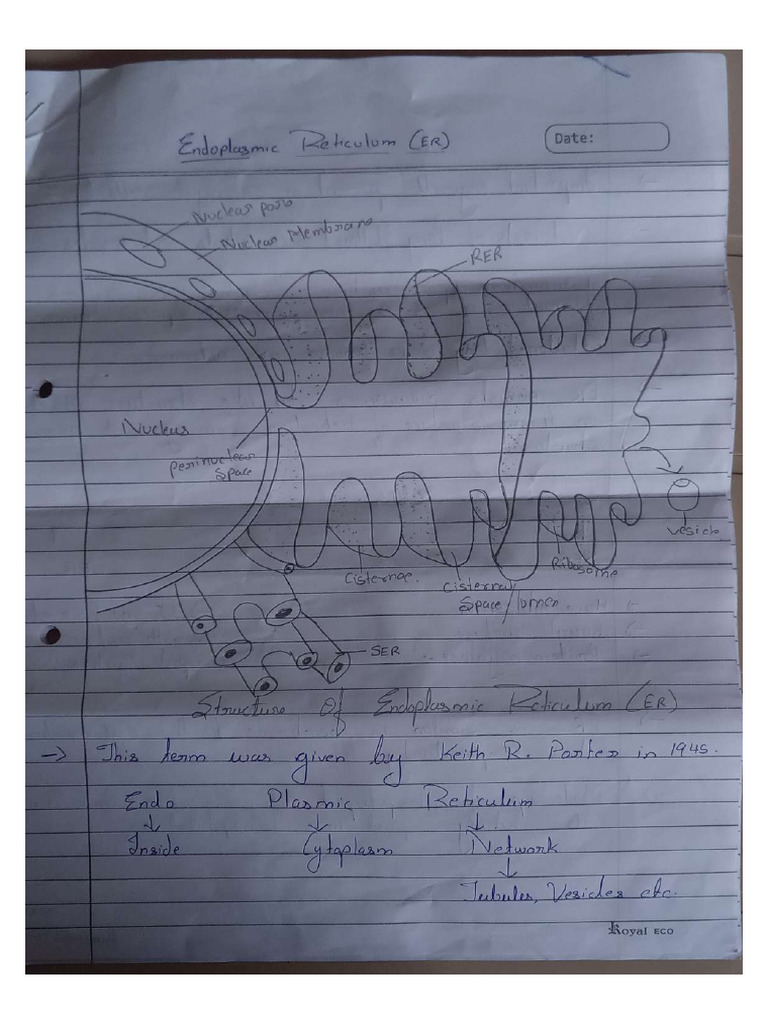 Endoplasmic Reticulum (ER)
Date:
Nuclear pore
Nuclear Membrane
RER
Nucleus
Perinuclear
Space
Vesicle
Ribosome
Cisternae.
Cisternal
Space/lumen.
SER
Structure Of Endoplasmic Reticulum (ER)
→ This term was given by Keith R. Porter in 1945.
Endo Plasmic Reticulum
↓ ↓ ↓
Inside Cytoplasm Network
↓
Tubules, Vesicles etc.
Royal ECO